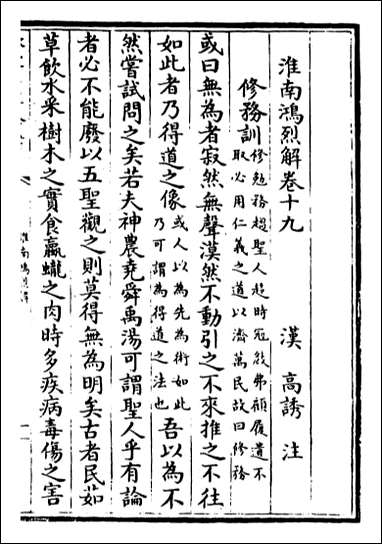 淮南鴻烈解卷十九
漢 高誘 注
修務訓 修勉務趨聖人趨時冠敚弗顧履遺不
取必用仁義之道以濟萬民故曰修務
或曰無為者寂然無聲漠然不動引之不來推之不往
如此者乃得道之像 或人以為先為術如此
乃可謂為得道之法也 吾以為不
然嘗試問之矣若夫神農堯舜禹湯可謂聖人乎有論
者必不能廢以五聖觀之則莫得無為明矣古者民茹
草飲水采樹木之實食蠃蠬之肉時多疾病毒傷之害